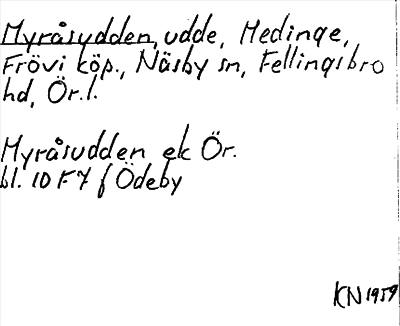 Myråsudden, udde, Medinge,
Frövi köp., Näsby sn, Fellingsbro
hd, Ör.l.
Myråsudden ek Ör.
bl. 10 F7 f Ödeby
KN 1959